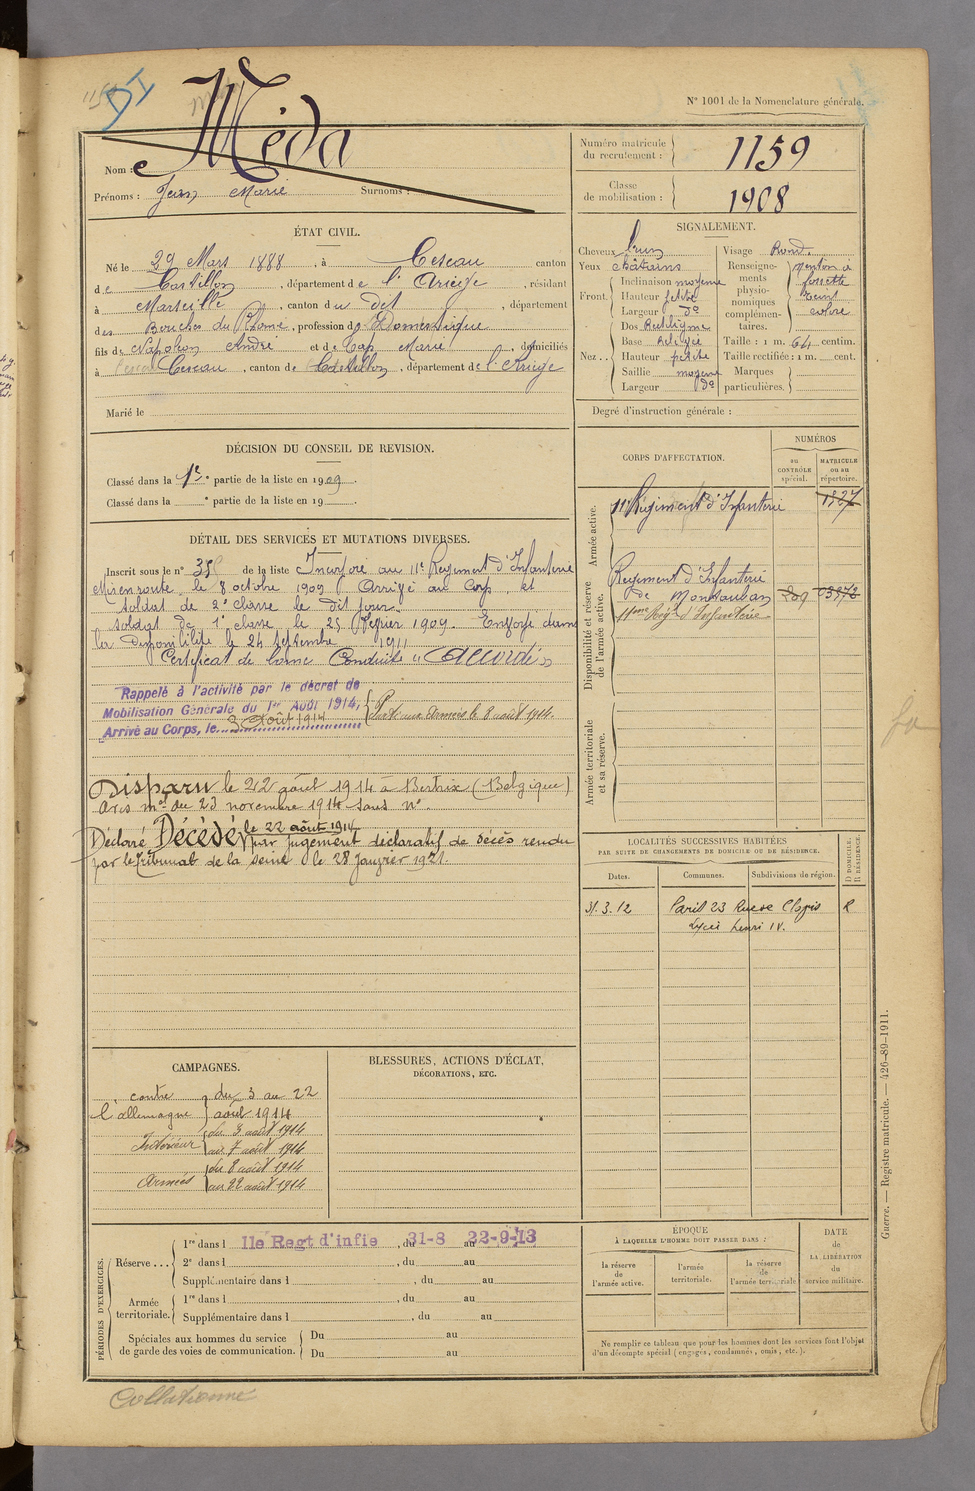 DI
N° 1001 de la Nomenclature générale.
Nom : Méda
Prénoms : Jean Marie Surnoms :
Numéro matricule du recrutement : 1159
Classe de mobilisation : 1908
ÉTAT CIVIL.
Né le 29 Mars 1888, à Cescau canton
de Castillon, département de l'Ariège, résidant
à Marseille, canton du dit, département
des Bouches du Rhône, profession de Domestique
fils de Napoléon André et de Cap Marie, domiciliés
à Cescau, canton de Castillon, département de l'Ariège
Marié le
SIGNALEMENT.
Cheveux brun
Yeux châtains
Front. Inclinaison moyenne
Hauteur petite
Largeur do
Nez . . Dos Rectiligne
Base Relevée
Hauteur petite
Saillie moyenne
Largeur do
Visage Rond.
Renseignements physionomiques complémentaires. menton à fossette teint coloré
Taille : 1 m. 64 centim.
Taille rectifiée : 1 m. cent.
Marques particulières.
Degré d'instruction générale :
DÉCISION DU CONSEIL DE REVISION.
Classé dans la 1e partie de la liste en 1909.
Classé dans la e partie de la liste en 19
CORPS D'AFFECTATION.
NUMÉROS
au CONTRÔLE spécial.
MATRICULE ou au répertoire.
Armée active.
11e Régiment d'Infanterie 1327
Disponibilité et réserve de l'armée active.
Régiment d'Infanterie
de Montauban 209
11me Rég. d'Infanterie
Armée territoriale et sa réserve.
DÉTAIL DES SERVICES ET MUTATIONS DIVERSES.
Inscrit sous le n° 35 de la liste Incorporé au 11e Régiment d'Infanterie
Mis en route le 8 octobre 1909 Arrivé au Corps et
soldat de 2e classe le dit jour.
soldat de 1e classe le 25 février 1909. Envoyé dans
la Disponibilité le 24 septembre 1911
Certificat de bonne Conduite "Accordé"
Rappelé à l'activité par le décret de
Mobilisation Générale du 1er Août 1914,
Arrivé au Corps, le 3 Août 1914
Parti aux Armées le 8 août 1914.
Disparu le 22 août 1914 à Bertrix (Belgique)
Avis mel du 23 novembre 1914 sans n°.
Déclaré Décédé le 22 août 1914 par jugement déclaratif de décès rendu
par le Tribunal de la seine le 28 Janvier 1921.
LOCALITÉS SUCCESSIVES HABITÉES
PAR SUITE DE CHANGEMENTS DE DOMICILE OU DE RÉSIDENCE.
Dates.
Communes.
Subdivisions de région.
D DOMICILE. R RÉSIDENCE.
31.3.12 Paris 23 Rue de Clovis R
Lycée Henri IV.
CAMPAGNES.
contre l'allemagne du 3 au 22 août 1914
Intérieur du 3 août 1914
au 7 août 1914
Armées du 8 août 1914
au 22 août 1914
BLESSURES, ACTIONS D'ÉCLAT,
DÉCORATIONS, ETC.
PÉRIODES D'EXERCICES.
Réserve . . . 1re dans l 11e Regt d'infie, du 31-8 au 22-9-13
2e dans l , du au
Supplémentaire dans l , du au
Armée territoriale. 1re dans l , du au
Supplémentaire dans l , du au
Spéciales aux hommes du service de garde des voies de communication. Du au
Du au
ÉPOQUE
À LAQUELLE L'HOMME DOIT PASSER DANS :
la réserve de l'armée active.
l'armée territoriale.
la réserve de l'armée territoriale
DATE de LA LIBÉRATION du service militaire.
Ne remplir ce tableau que pour les hommes dont les services font l'objet
d'un décompte spécial (engagés, condamnés, omis, etc.).
Guerre. — Registre matricule. — 426-89-1911.
Collationné